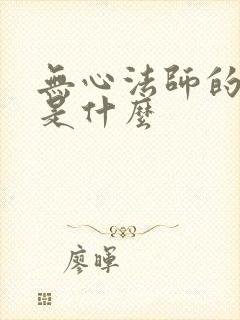 無心法師的
是什麼
廖暉